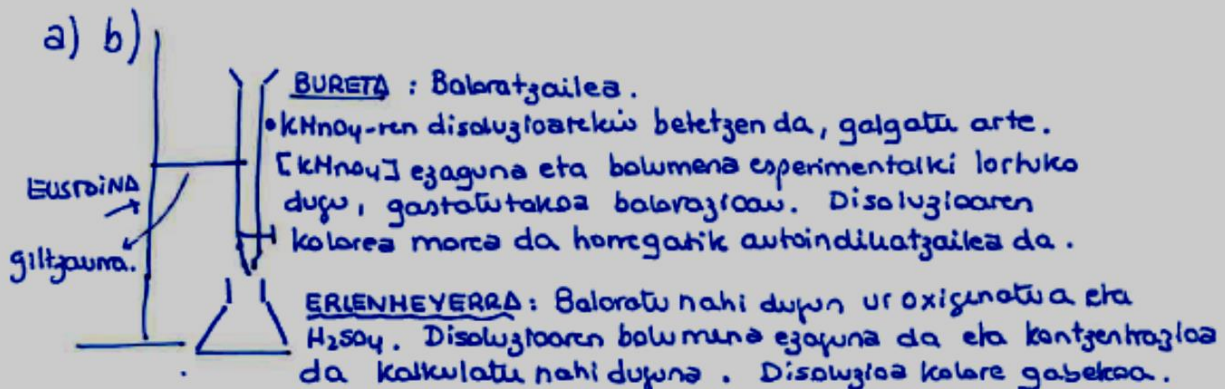 a) b)
BURETA : Baloratzailea.
• KMnO4-ren disoluzioarekin betetzen da, galgatu arte.
[KMnO4] ezaguna eta bolumena esperimentalki lortuko
dugu, gastatutakoa balorazioan. Disoluzioaren
kolorea morea da horregatik autoindikatzailea da.
EUSTOINA
giltzaurra.
ERLENMEYERRA: Baloratu nahi dugun ur oxigenatua eta
H2SO4. Disoluzioaren bolumena ezaguna da eta kontzentrazioa
da kalkulatu nahi duguna. Disoluzioa kolore gabekoa.